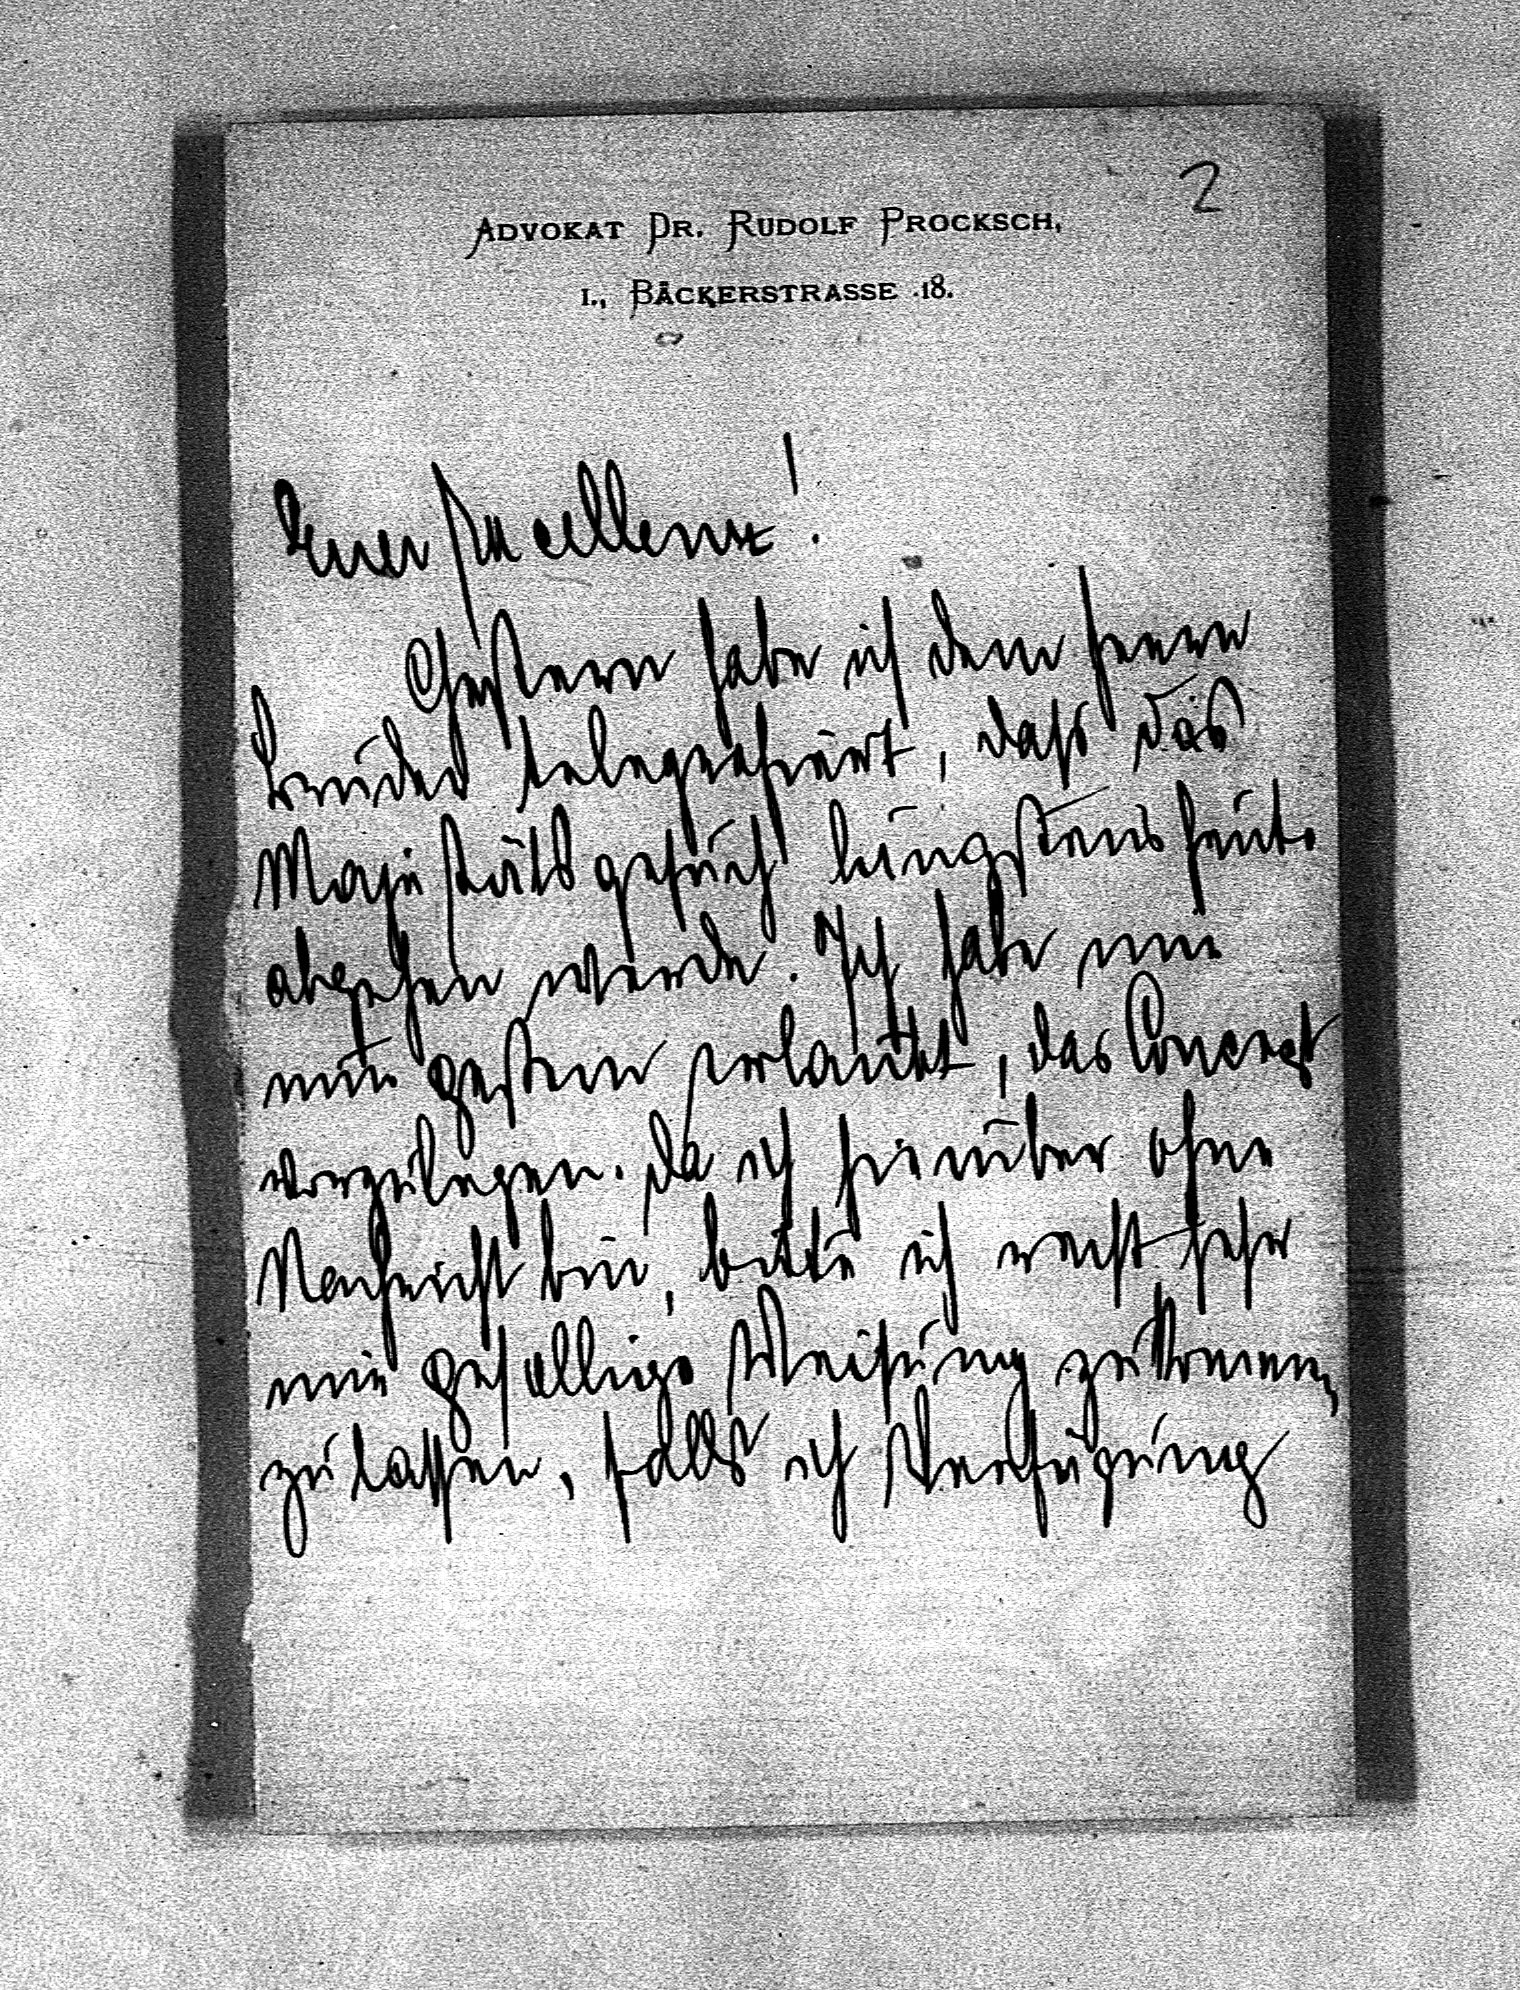 2
ADVOKAT DR. RUDOLF PROCKSCH,
I., BÄCKERSTRASSE 18.
Euer Excellenz!
Gestern habe ich dem Herrn
Bruder telegrafiert, daß das
Majestätsgesuch längstens heute
abgehen werde. Ich habe mir
nun gestern erlaubt, das Concept
vorzulegen. Da ich hierüber ohne
Nachricht bin, bitte ich recht sehr
mir gefällige Weisung zukommen
zu lassen, falls ich Verfügung